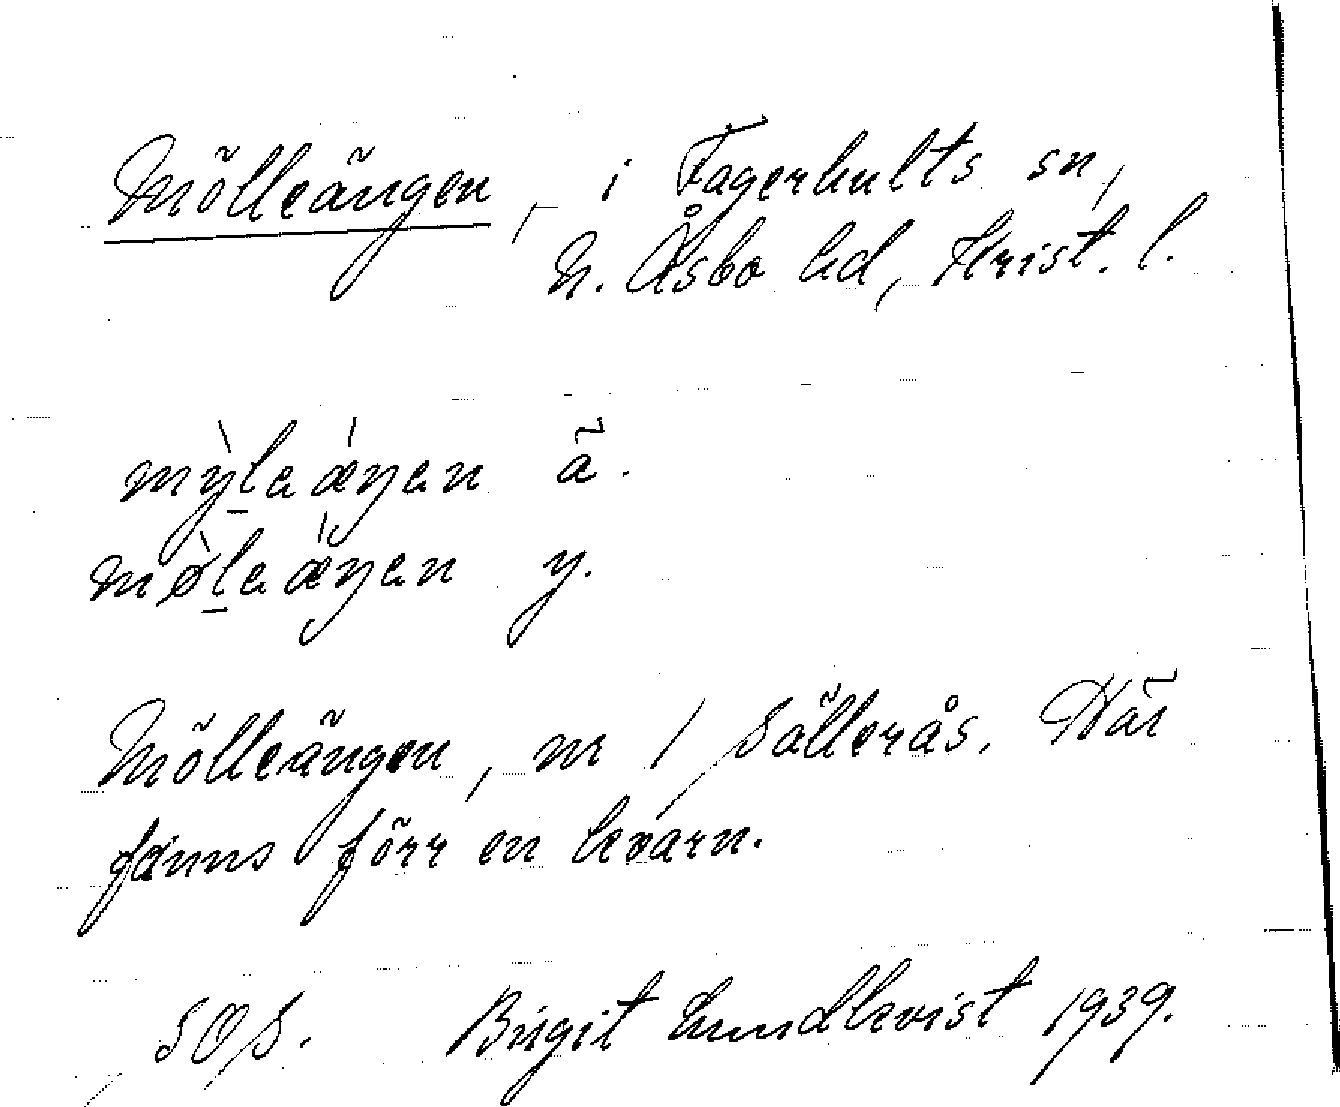 Mölleängen, i Fagerhults sn,
N. Åsbo hd, Krist. l.
mỳl̠eǽŋen ä.
mø̀l̠eǽŋen y.
Mölleängen, m / Sällerås. Här
fanns förr en kvarn.
SOS. Birgit Lundkvist 1939.